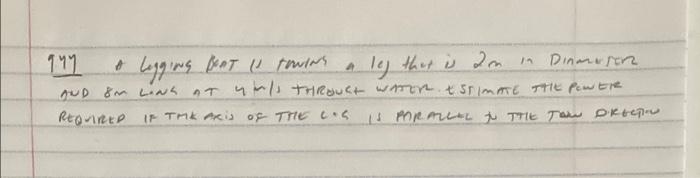 9.47 A Logging BOAT IS towing a log that is 2m in DIAMETER
AND 8m LONG AT 4 m/s THROUGH WATER. ESTIMATE THE POWER
REQUIRED IF THE AXIS OF THE LOG IS PARALLEL to THE TOW DIRECTION